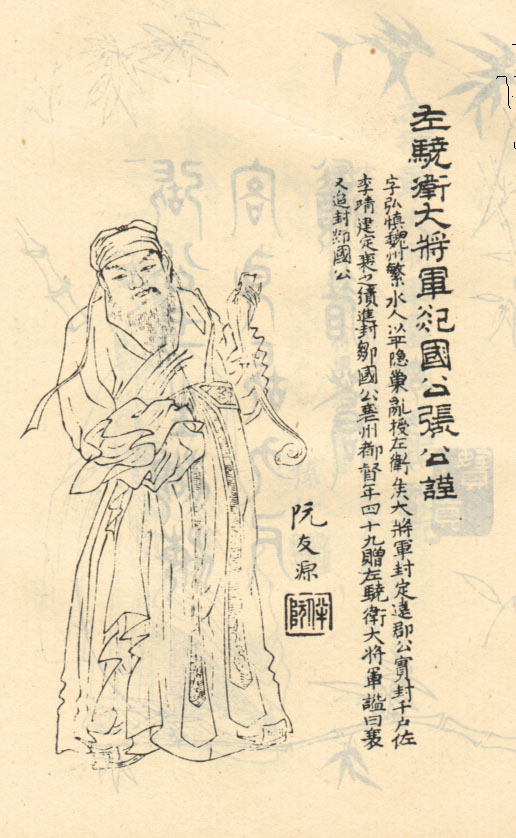 左驍衛大將軍郯國公張公謹
字弘慎魏州繁水人以平隐巢亂授左衛矦大將軍封定遠郡公實封千户佐
李靖建定襄之績進封鄒國公襄州都督年四十九贈左驍衛大將軍謚曰襄
又追封郯國公
阮友源